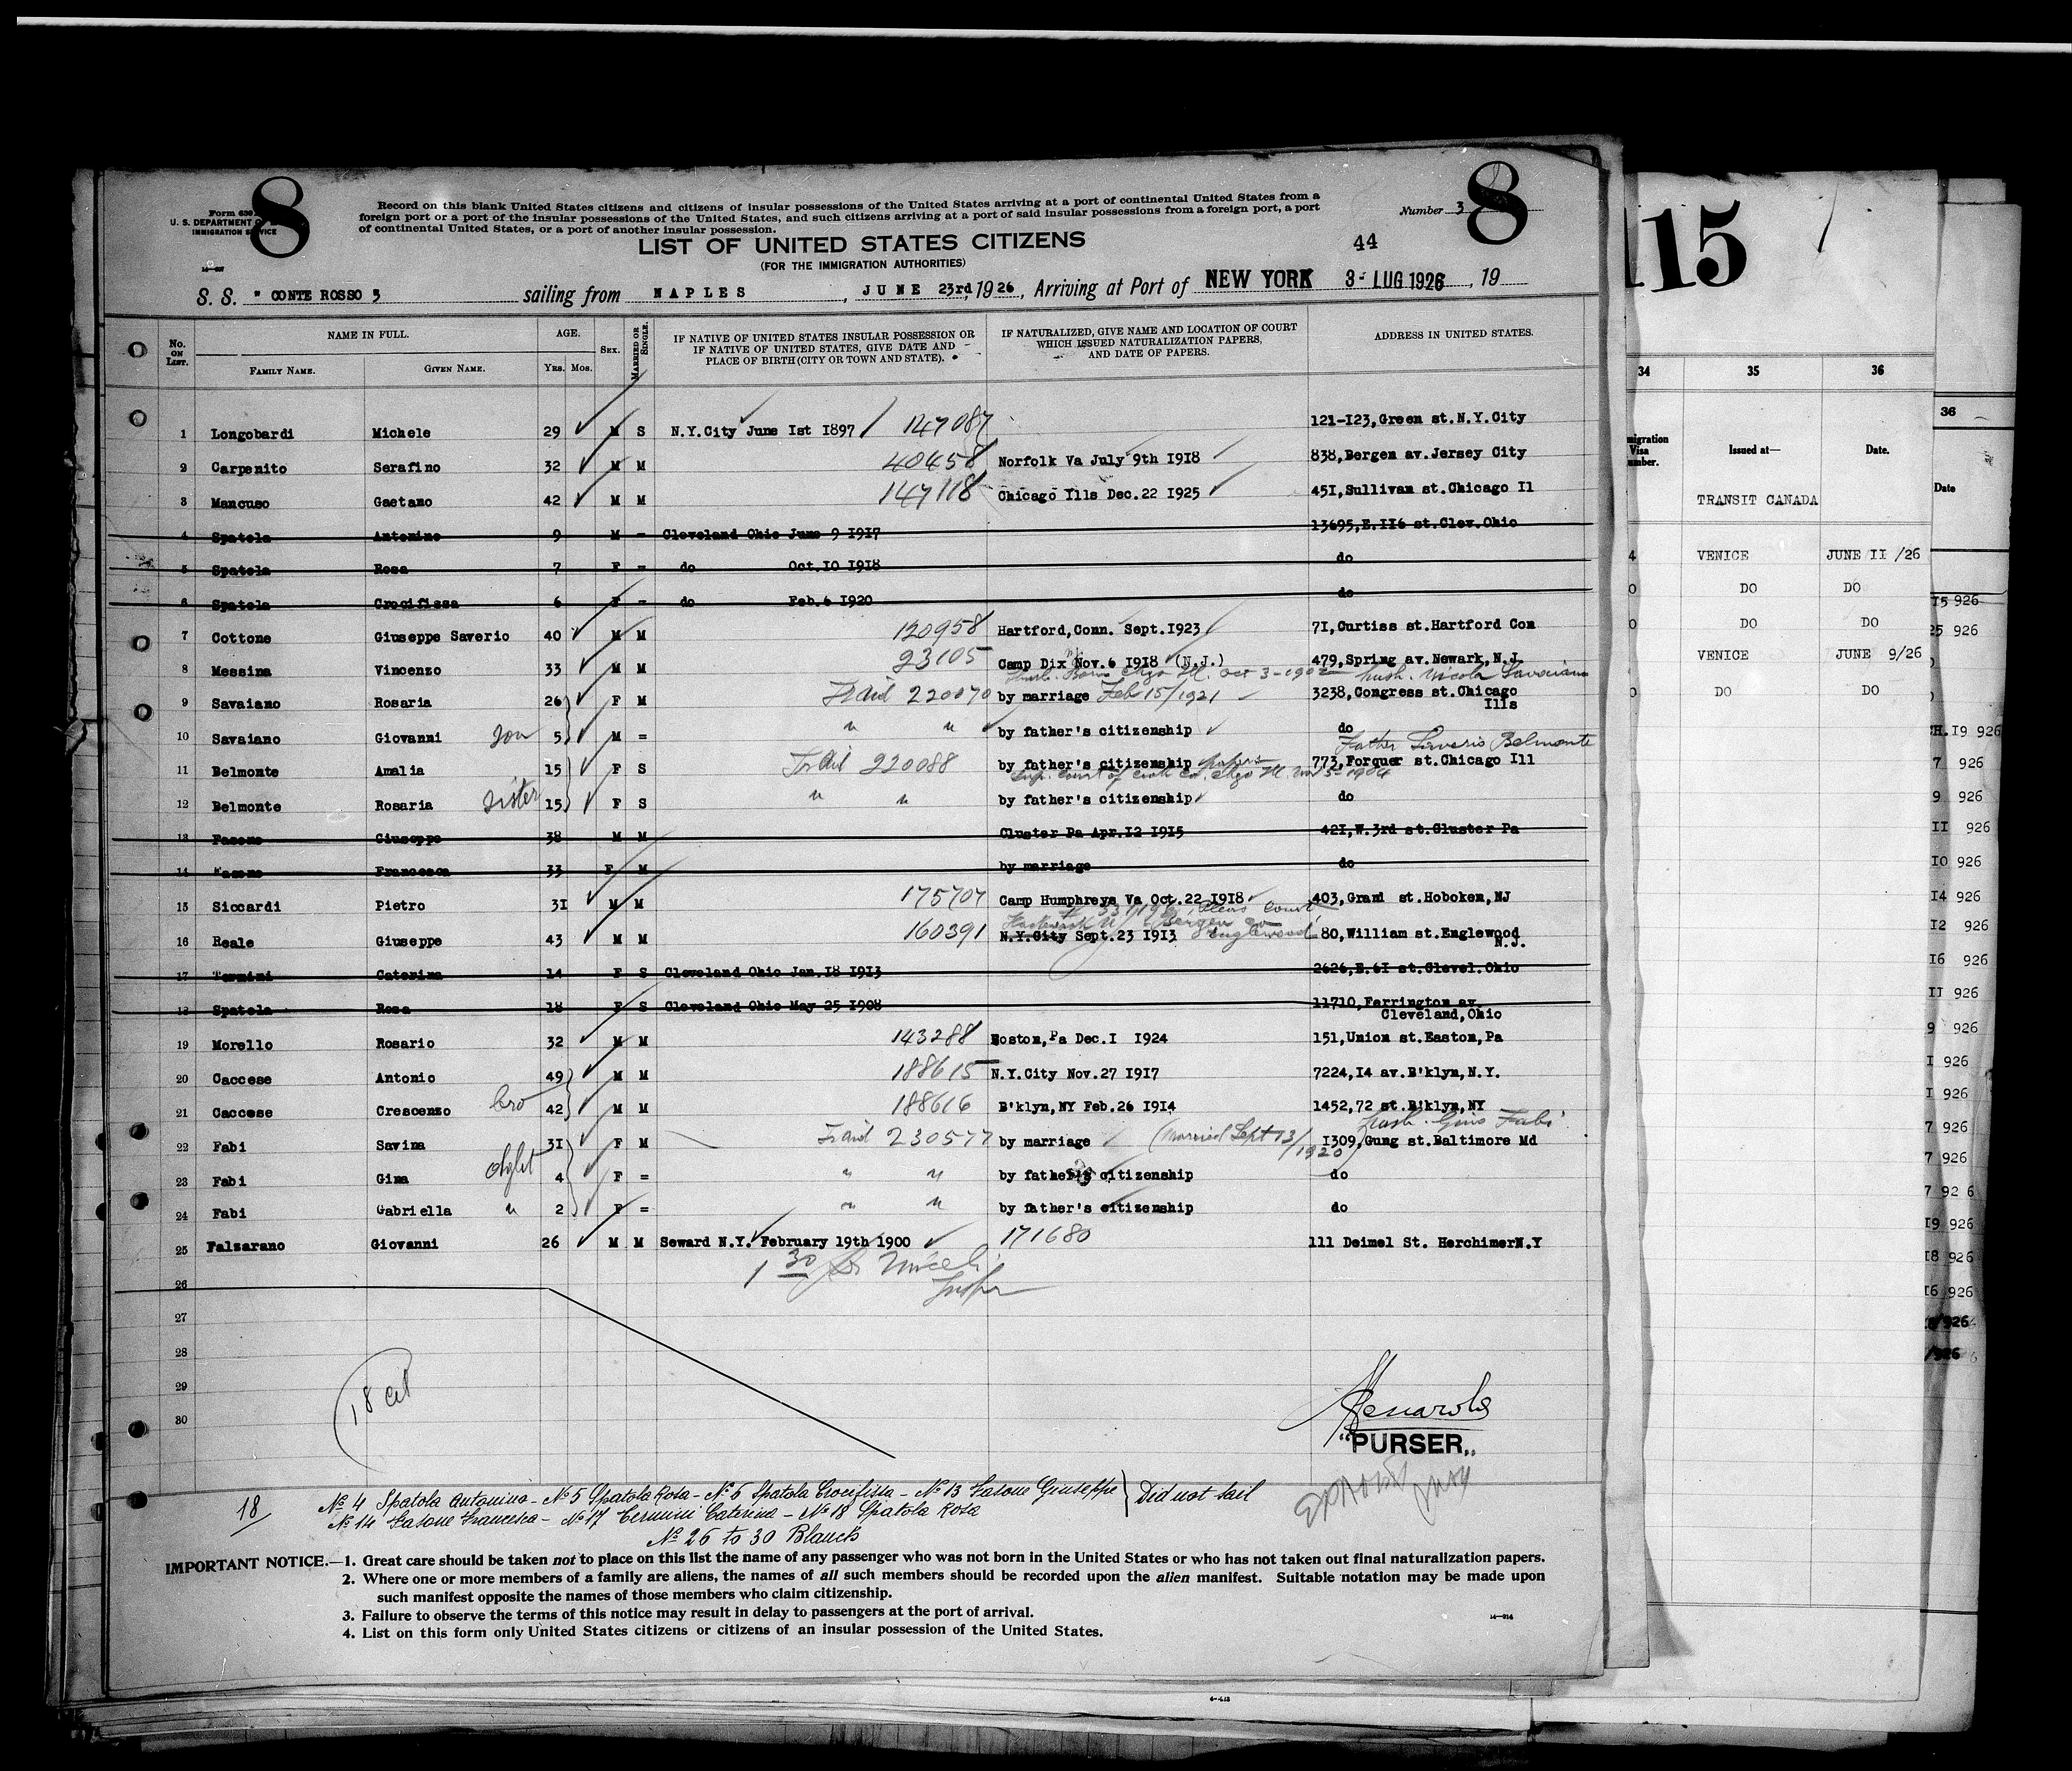 8
8
Form 630
U. S. DEPARTMENT OF
IMMIGRATION SERVICE
Record on this blank United States citizens and citizens of insular possessions of the United States arriving at a port of continental United States from a
foreign port or a port of the insular possessions of the United States, and such citizens arriving at a port of said insular possessions from a foreign port, a port
of continental United States, or a port of another insular possession.
Number 3
LIST OF UNITED STATES CITIZENS
44
(FOR THE IMMIGRATION AUTHORITIES)
S. S. " CONTE ROSSO 5 sailing from NAPLES, JUNE 23rd, 1926, Arriving at Port of NEW YORK 3- LUG 1926, 19
No. ON LIST. NAME IN FULL. AGE. SEX. MARRIED OR SINGLE. IF NATIVE OF UNITED STATES INSULAR POSSESSION OR IF NATIVE OF UNITED STATES, GIVE DATE AND PLACE OF BIRTH (CITY OR TOWN AND STATE). IF NATURALIZED, GIVE NAME AND LOCATION OF COURT WHICH ISSUED NATURALIZATION PAPERS, AND DATE OF PAPERS. ADDRESS IN UNITED STATES.
FAMILY NAME. GIVEN NAME. YRS. MOS.
1 Longobardi Michele 29 M S N.Y.City June Ist I897 / 147087 121-I23,Green st.N.Y.City
2 Carpenito Serafino 32 M M 40458 Norfolk Va July 9th I9I8 838,Bergen av.Jersey City
3 Mancuso Gaetano 42 M M 147118 Chicago Ills Dec.22 I925 45I,Sullivan st.Chicago Il
4 Spatola Antonino 9 M - Cleveland Ohio June 9 I9I7 I3695,E.II6 st.Clev.Ohio
5 Spatola Rosa 7 F - do Oct.IO I9I8 do
6 Spatola Crocifissa 6 F - do Feb.6 I920 do
7 Cottone Giuseppe Saverio 40 M M 120958 Hartford,Conn. Sept.I923 7I,Curtiss st.Hartford Con
8 Messina Vincenzo 33 M M 23105 Camp Dix Nov.6 I9I8 (N.J.) 479,Spring av.Newark,N.J.
Born Chgo Ill. Oct 3-1902 husb. Nicola Savaiano
9 Savaiano Rosaria 26 F M 220070 by marriage Feb 15/1921 3238,Congress st.Chicago
Ills
10 Savaiano Giovanni son 5 M = " " by father's citizenship do
Father Saverio Belmonte
11 Belmonte Amalia 15 F S 220088 by father's citizenship papers 773,Forquer st.Chicago Ill
Sup. Court of Cook Co. Chgo Ill. Nov 5-1904
12 Belmonte Rosaria sister 15 F S " " by father's citizenship do
13 Fasone Giuseppe 38 M M Cluster Pa Apr.I2 I9I5 42I,W.3rd st.Cluster Pa
14 Fasone Francesca 33 F M by marriage do
15 Siccardi Pietro 3I M M 175707 Camp Humphreys Va Oct.22 I9I8 403,Grand st.Hoboken,NJ
Pleas Court
Bergen Co
16 Reale Giuseppe 43 M M 160391 N.Y.City Sept.23 I9I3 Englewood 80,William st.Englewood
N.J.
17 Termini Caterina 14 F S Cleveland Ohio Jan.I8 I9I3 2626,E.6I st.Clevel.Ohio
18 Spatola Rosa 18 F S Cleveland Ohio May 25 I908 II7I0,Farrington av.
Cleveland,Ohio
19 Morello Rosario 32 M M 143288 Boston,Pa Dec.I I924 151,Union st.Easton,Pa
20 Caccese Antonio 49 M M 188615 N.Y.City Nov.27 I9I7 7224,I4 av.B'klyn,N.Y.
21 Caccese Crescenzo bro 42 M M 188616 B'klyn,NY Feb.26 I9I4 1452,72 st.B'klyn,NY
husb. Gino Fabi
22 Fabi Savina 3I F M 230577 by marriage (Married Sept 13/1920) I309,Gung st.Baltimore Md
23 Fabi Gina dght 4 F = " " by father's citizenship do
24 Fabi Gabriella " 2 F = " " by father's citizenship do
25 Falzarano Giovanni 26 M M Seward N.Y. February 19th 1900 171680 111 Deimel St. HerchimerN.Y
1 30
26
27
28
29
30
18 cit
"PURSER„
18
No 4 Spatola Antonino - No 5 Spatola Rosa - No 6 Spatola Crocifissa - No 13 Fasone Giuseppe } Did not sail
No 14 Fasone Francesca - No 17 Termini Caterina - No 18 Spatola Rosa
No 26 to 30 Blancks
IMPORTANT NOTICE.—1. Great care should be taken not to place on this list the name of any passenger who was not born in the United States or who has not taken out final naturalization papers.
2. Where one or more members of a family are aliens, the names of all such members should be recorded upon the alien manifest. Suitable notation may be made upon
such manifest opposite the names of those members who claim citizenship.
3. Failure to observe the terms of this notice may result in delay to passengers at the port of arrival.
4. List on this form only United States citizens or citizens of an insular possession of the United States.
14—314
115
34 35 36
migration
Visa
umber.
Issued at—
Date.
TRANSIT CANADA
4 VENICE JUNE II /26
0 DO DO
0 DO DO
VENICE JUNE 9/26
0 DO DO
36
Date
I5 926
25 926
CH.I9 926
7 926
9 926
II 926
I0 926
I4 926
I2 926
I6 926
II 926
9 926
I 926
I 926
7 926
7 926
7 92 6
I9 926
I8 926
I6 926
/926
/926